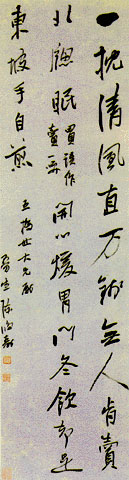 一枕清風直万錢無人肯賣
北牕眠買誤作賣開心煖胃門冬飲知是
東坡手自煎
世大兄
曼生陳鴻壽